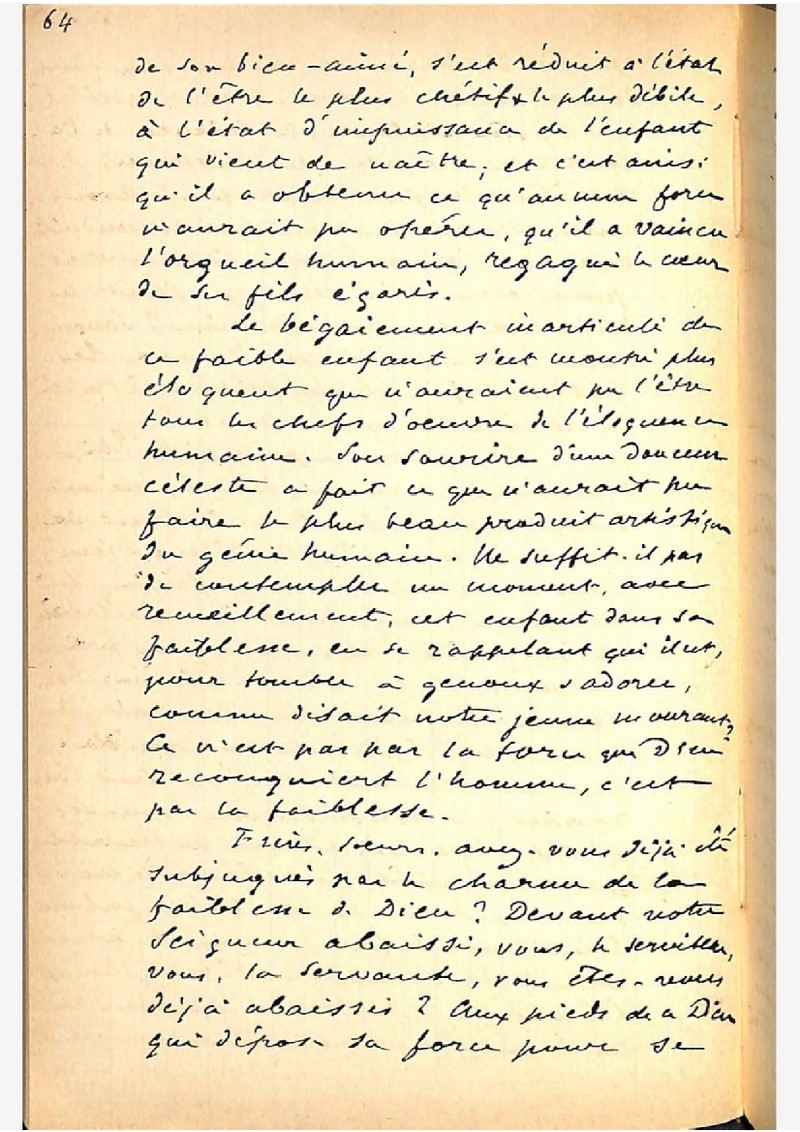 64
de son bien-aimé, s'est réduit à l'état
de l'être le plus chétif & le plus débile,
à l'état d'impuissance de l'enfant
qui vient de naître; et c'est ainsi
qu'il a obtenu ce qu'aucune force
n'aurait pu opérer, qu'il a vaincu
l'orgueil humain, regagné le cœur
de ses fils égarés.
Le bégaiement inarticulé de
ce faible enfant s'est montré plus
éloquent que n'auraient pu l'être
tous les chefs d'oeuvre de l'éloquence
humaine. Son sourire d'une douceur
céleste a fait ce que n'aurait pu
faire le plus beau produit artistique
du génie humain. Ne suffit-il pas
de contempler un moment, avec
recueillement, cet enfant dans sa
faiblesse, en se rappelant qui il est,
pour tomber à genoux & adorer,
comme disait notre jeune mourant?
Ce n'est pas par la force que Dieu
reconquiert l'homme, c'est
par la faiblesse.
Frères, soeurs, avez-vous déjà été
subjugués par le charme de la
faiblesse de Dieu? Devant notre
Seigneur abaissé, vous, le serviteur,
vous, la servante, vous êtes-vous
déjà abaissés? Aux pieds de ce Dieu
qui dépose sa force pour se